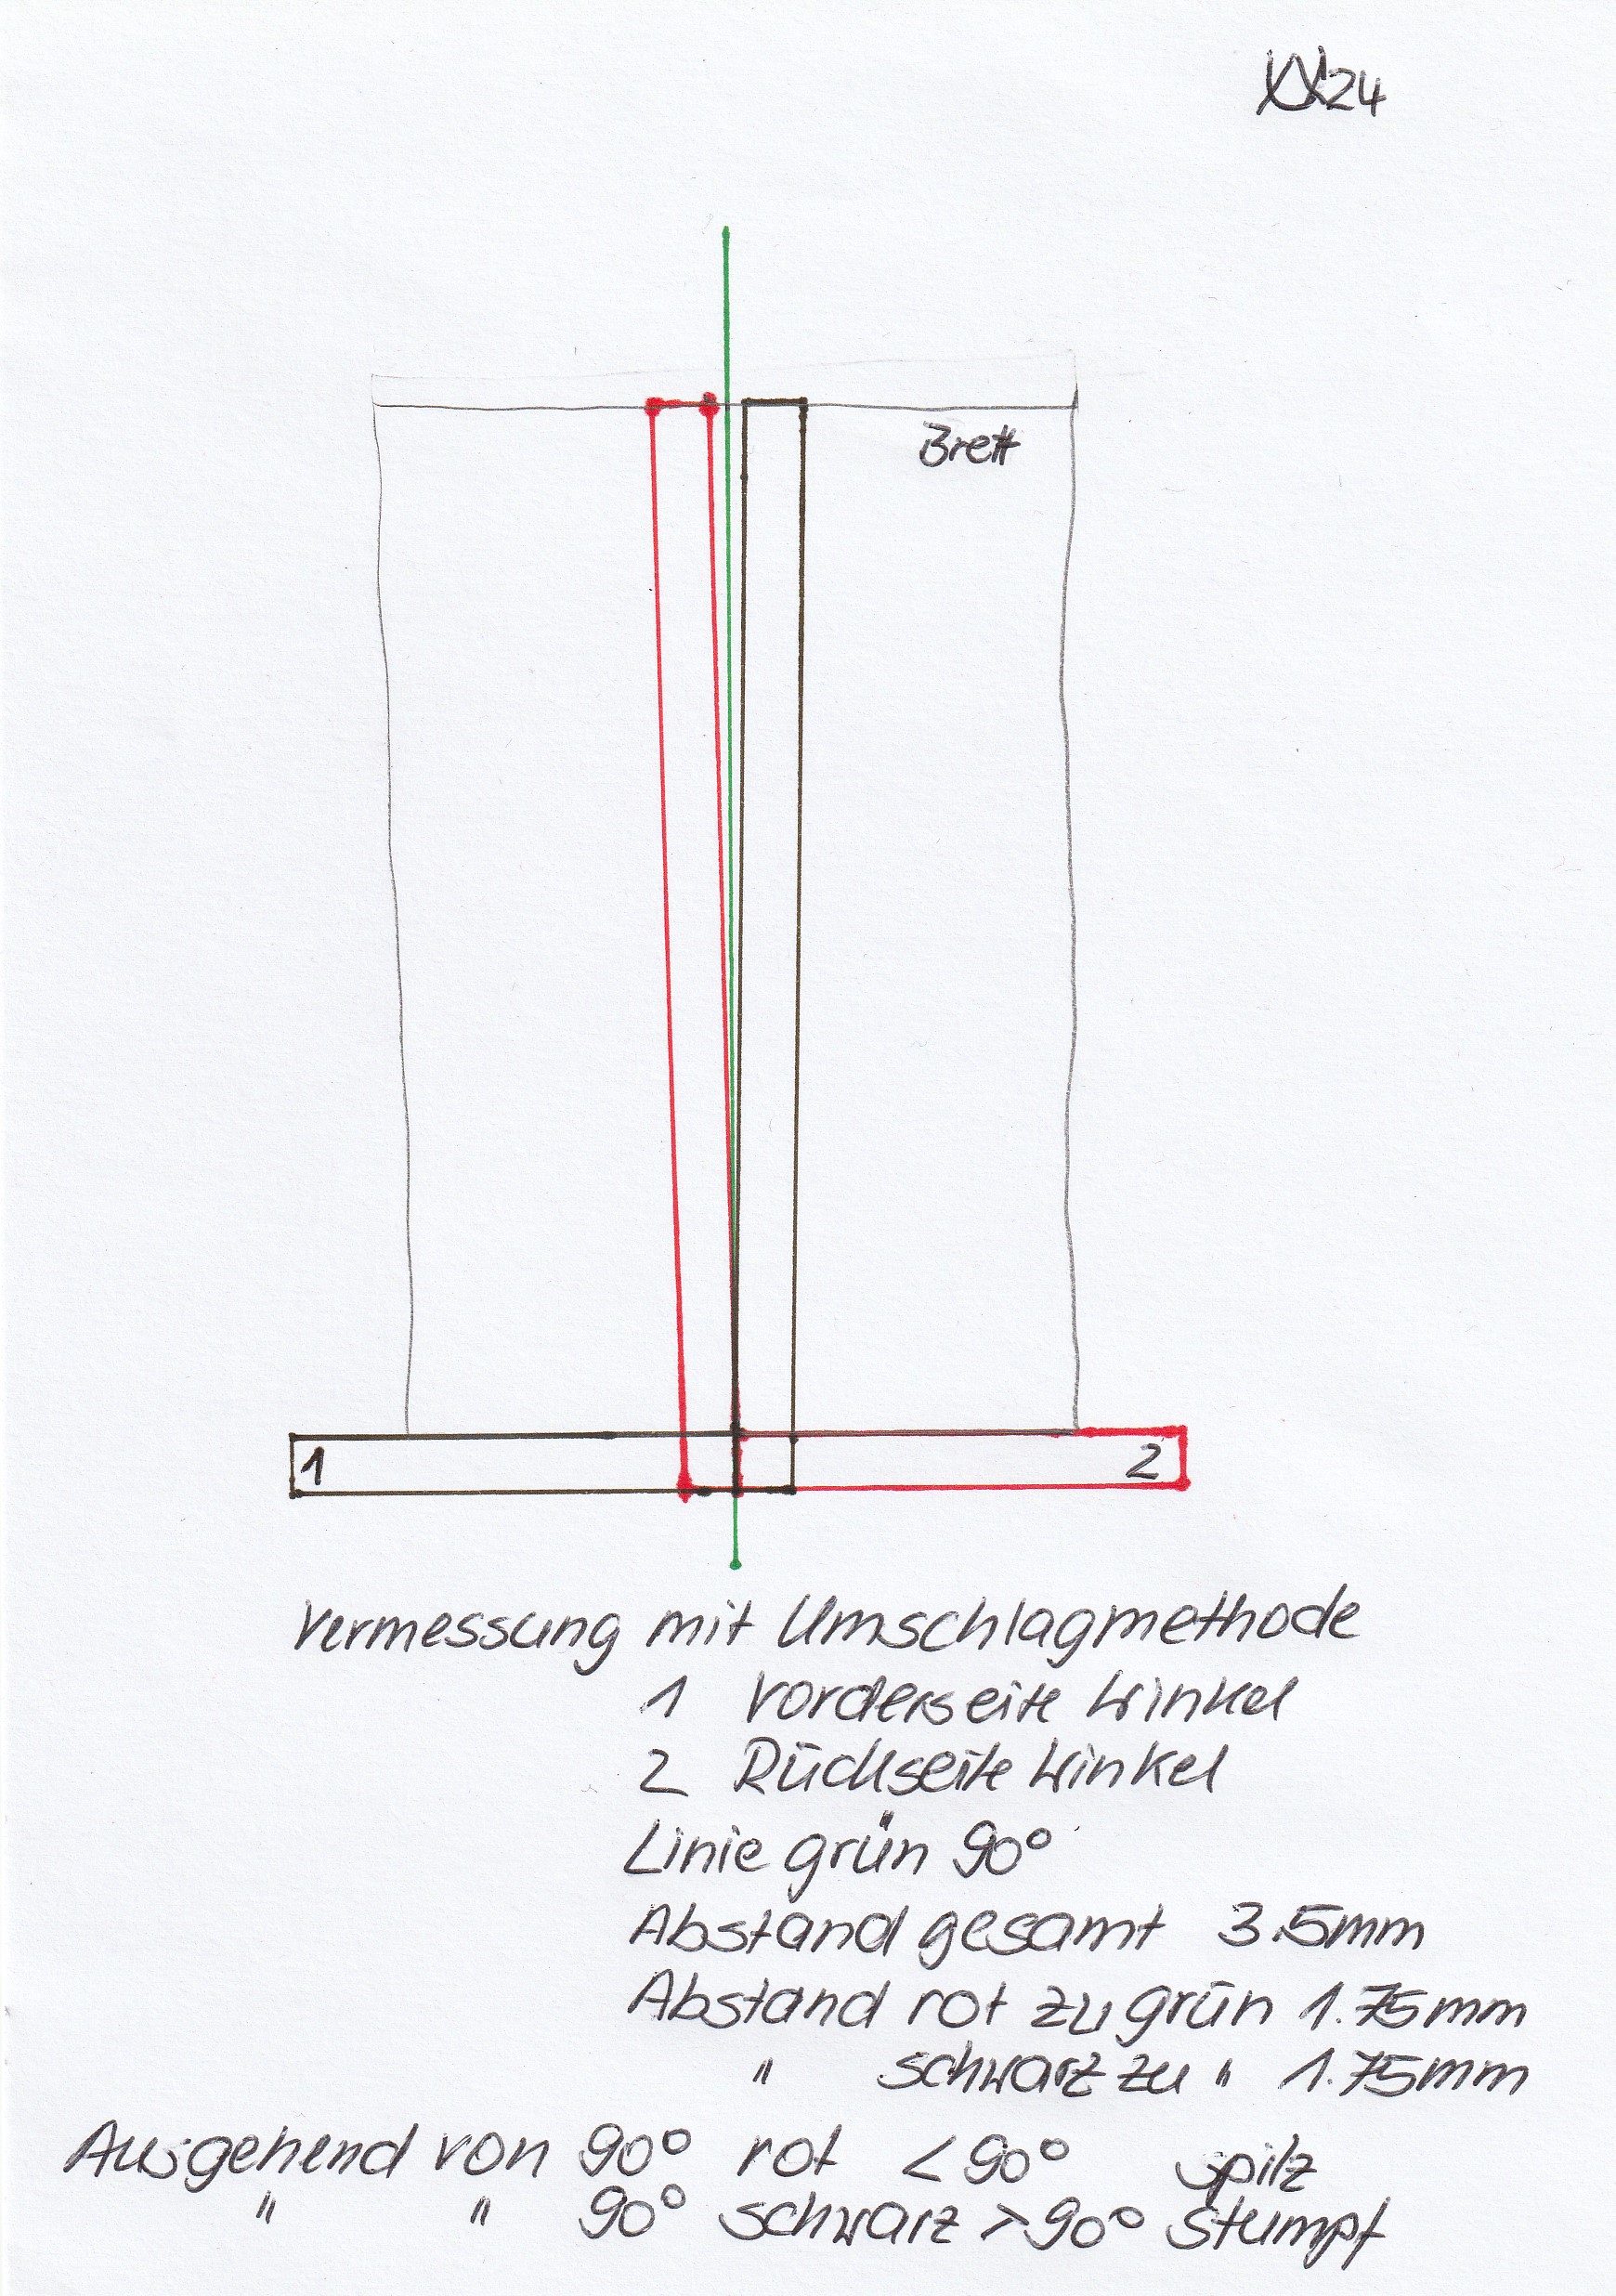 24
Brett
1
2
Vermessung mit Umschlagmethode
1 Vorderseite Winkel
2 Rückseite Winkel
Linie grün 90°
Abstand gesamt 3.5mm
Abstand rot zu grün 1.75mm
" schwarz zu " 1.75mm
Ausgehend von 90° rot < 90° spitz
" " 90° schwarz > 90° stumpf